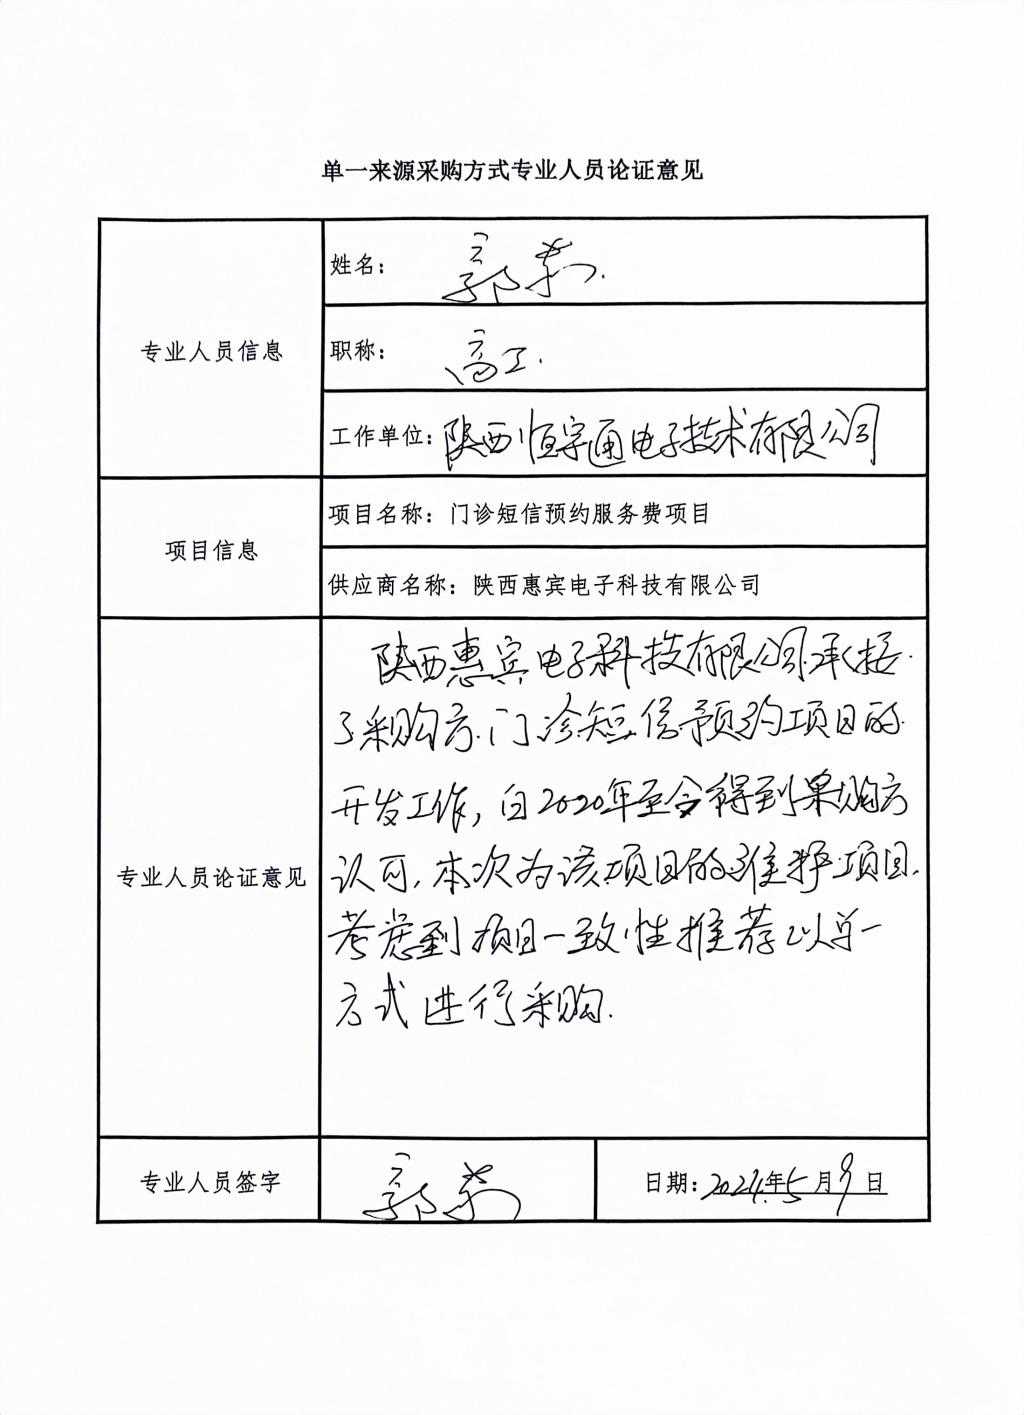 单一来源采购方式专业人员论证意见
专业人员信息
姓名：郭
职称：高工.
工作单位：陕西恒宇通电子技术有限公司
项目信息
项目名称：门诊短信预约服务费项目
供应商名称：陕西惠宾电子科技有限公司
专业人员论证意见
陕西惠宾电子科技有限公司承接
了采购方门诊短信预约项目的
开发工作，自2020年至今得到采购方
认可，本次为该项目的维护项目，
考虑到项目一致性推荐以单一
方式进行采购.
专业人员签字
郭
日期：2024年5月9日